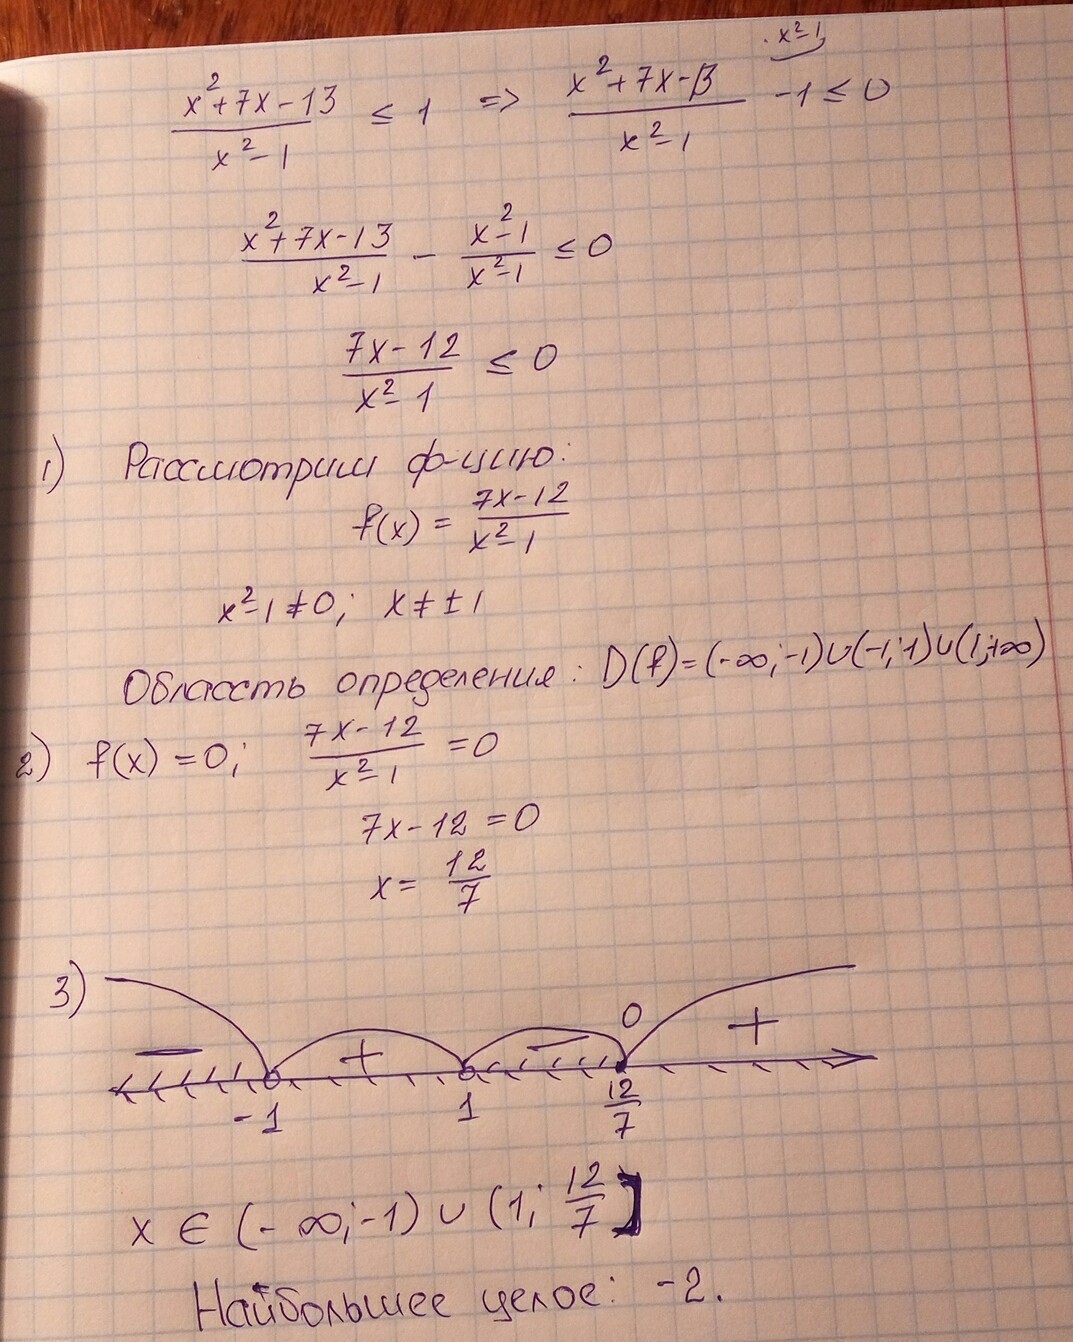 x²+7x-13 / x²-1 ≤ 1 => x²+7x-13 / x²-1 -1 ≤ 0 · x²-1
x²+7x-13 / x²-1 - x²-1 / x²-1 ≤ 0
7x-12 / x²-1 ≤ 0
1) Рассмотрим ф-цию:
f(x) = 7x-12 / x²-1
x²-1 ≠ 0; x ≠ ±1
Область определения: D(f)=(-∞;-1)∪(-1;1)∪(1;+∞)
2) f(x) = 0; 7x-12 / x²-1 = 0
7x-12 = 0
x = 12/7
3) − + − 0 +
-1 1 12/7
x ∈ (-∞;-1) ∪ (1; 12/7]
Наибольшее целое: -2.